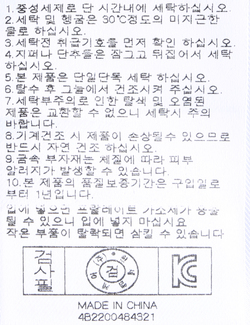 1. 중성세제로 단 시간내에 세탁하십시오.
2. 세탁 및 헹굼은 30℃정도의 미지근한
물로 하십시오.
3. 세탁전 취급기호를 먼저 확인 하십시오.
4. 지퍼나 단추등은 잠그고 뒤집어서 세탁
하십시오.
5. 본 제품은 단일단독 세탁 하십시오.
6. 탈수 후 그늘에서 건조시켜 주십시오.
7. 세탁부주의로 인한 탈색 및 오염된
제품은 교환할 수 없으니 세탁시 주의
바랍니다.
8. 기계건조 시 제품이 손상될수 있으므로
반드시 자연 건조 하십시오.
9. 금속 부자재는 체질에 따라 피부
알러지가 발생할 수 있습니다.
10. 본 제품의 품질보증기간은 구입일로
부터 1년입니다.
입에 넣으면 프탈레이트 가소제가 용출
될 수 있으니 입에 넣지 마십시요
작은 부품이 탈락되면 삼킬 수 있습니다
검사필
검
KC
MADE IN CHINA
4B2200484321